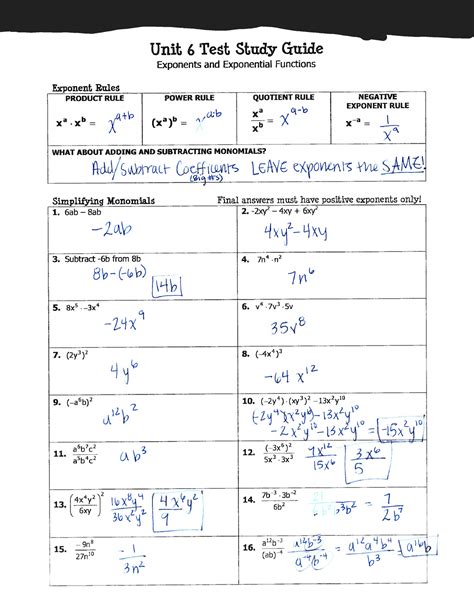 Unit 6 Test Study Guide
Exponents and Exponential Functions
Exponent Rules
PRODUCT RULE
xᵃ · xᵇ = xᵃ⁺ᵇ
POWER RULE
(xᵃ)ᵇ = xᵃᵇ
QUOTIENT RULE
xᵃ/xᵇ = xᵃ⁻ᵇ
NEGATIVE EXPONENT RULE
x⁻ᵃ = 1/xᵃ
WHAT ABOUT ADDING AND SUBTRACTING MONOMIALS?
Add/Subtract Coefficents (Big #s) LEAVE exponents the SAME!
Simplifying Monomials
Final answers must have positive exponents only!
1. 6ab – 8ab
-2ab
2. -2xy² – 4xy + 6xy²
4xy² - 4xy
3. Subtract -6b from 8b
8b - (-6b)
14b
4. 7n⁴ · n²
7n⁶
5. 8x⁵ · -3x⁴
-24x⁹
6. v⁴ · 7v³ · 5v
35v⁸
7. (2y³)²
4y⁶
8. (-4x⁴)³
-64 x¹²
9. (-a⁶b)²
a¹²b²
10. (-2y⁴) · (xy³)² – 13x²y¹⁰
(-2y⁴)(x²y⁶) - 13x²y¹⁰
-2x²y¹⁰ - 13x²y¹⁰ = -15x²y¹⁰
11. a⁶b⁷c²/a⁵b⁴c²
ab³
12. (-3x⁶)²/5x³ · 3x³
9x¹²/15x⁶
3x⁶/5
13. (4x⁴y²/6xy)²
16x⁸y⁴/36x²y²
4x⁶y²/9
14. 7b⁻³ · 3b⁻²/6b²
= 7/2b⁷
15. -9n⁸/27n¹⁰
-1/3n²
16. a¹²b⁻³/(ab)⁻⁴
a¹²b⁻³/a⁻⁴b⁻⁴ = a¹²a⁴b⁴/b³ = a¹⁶b